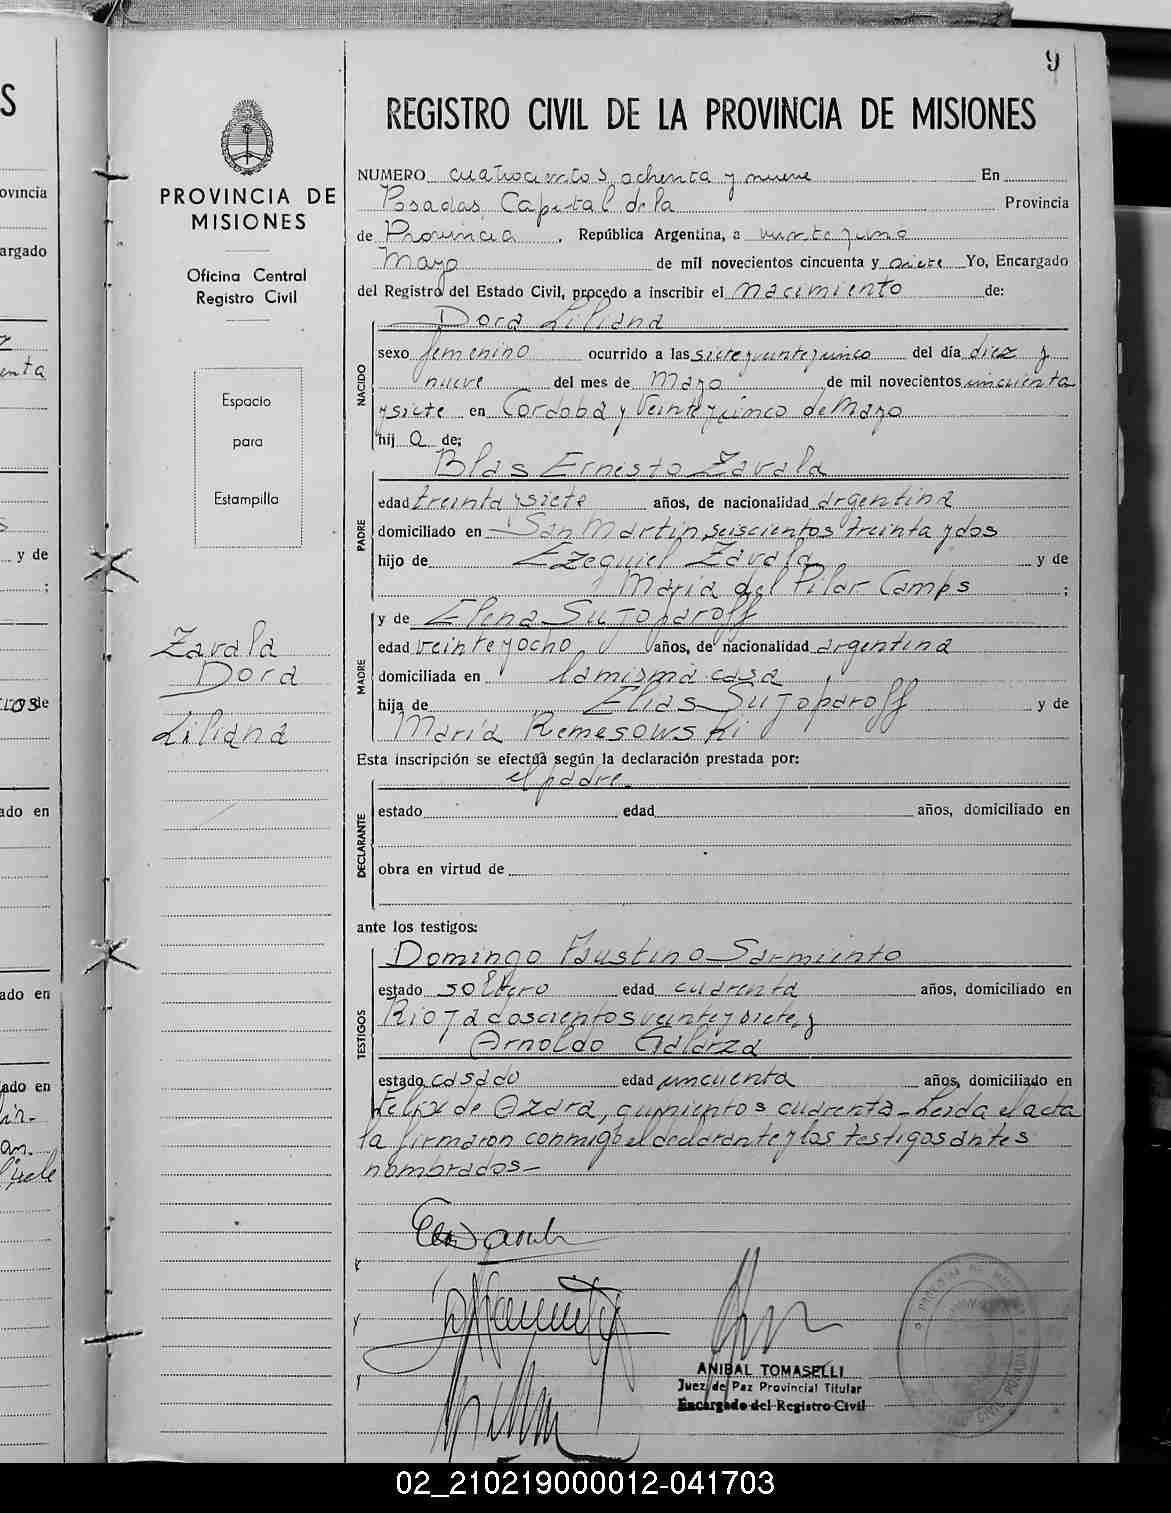 9
REGISTRO CIVIL DE LA PROVINCIA DE MISIONES
PROVINCIA DE
MISIONES
Oficina Central
Registro Civil
Espacio
para
Estampilla
Zavala
Dora
Liliana
NUMERO cuatrocientos ochenta y nueve En
Posadas, Capital de la Provincia
de Provincia, República Argentina, a
Mayo de mil novecientos cincuenta y siete Yo, Encargado
del Registro del Estado Civil, procedo a inscribir el nacimiento de:
NACIDO
Dora Liliana
sexo femenino ocurrido a las siete y veinte y cinco del día diez y
nueve del mes de Mayo de mil novecientos cincuenta
y siete en Cordoba y Veinte y cinco de Mayo
hij a de:
PADRE
Blas Ernesto Zavala
edad treinta y siete años, de nacionalidad argentina
domiciliado en San Martin, seiscientos treinta y dos
hijo de Ezequiel Zavala y de
Maria del Pilar Camps ;
y de Elena Sujoparoff
MADRE
edad veinte y ocho años, de nacionalidad argentina
domiciliada en la misma casa
hija de Elias Sujoparoff y de
María Remesowski
Esta inscripción se efectúa según la declaración prestada por:
el padre.
DECLARANTE
estado edad años, domiciliado en
obra en virtud de
ante los testigos:
TESTIGOS
Domingo Faustino Sarmiento
estado soltero edad cuarenta años, domiciliado en
Rioja doscientos veinte y siete, y
Arnoldo Galarza
estado casado edad cincuenta años, domiciliado en
Felix de Azara, quinientos cuarenta - Leida el acta
la firmaron conmigo el declarante y los testigos antes
nombrados -
ANIBAL TOMASELLI
Juez de Paz Provincial Titular
Encargado del Registro Civil
02_210219000012-041703